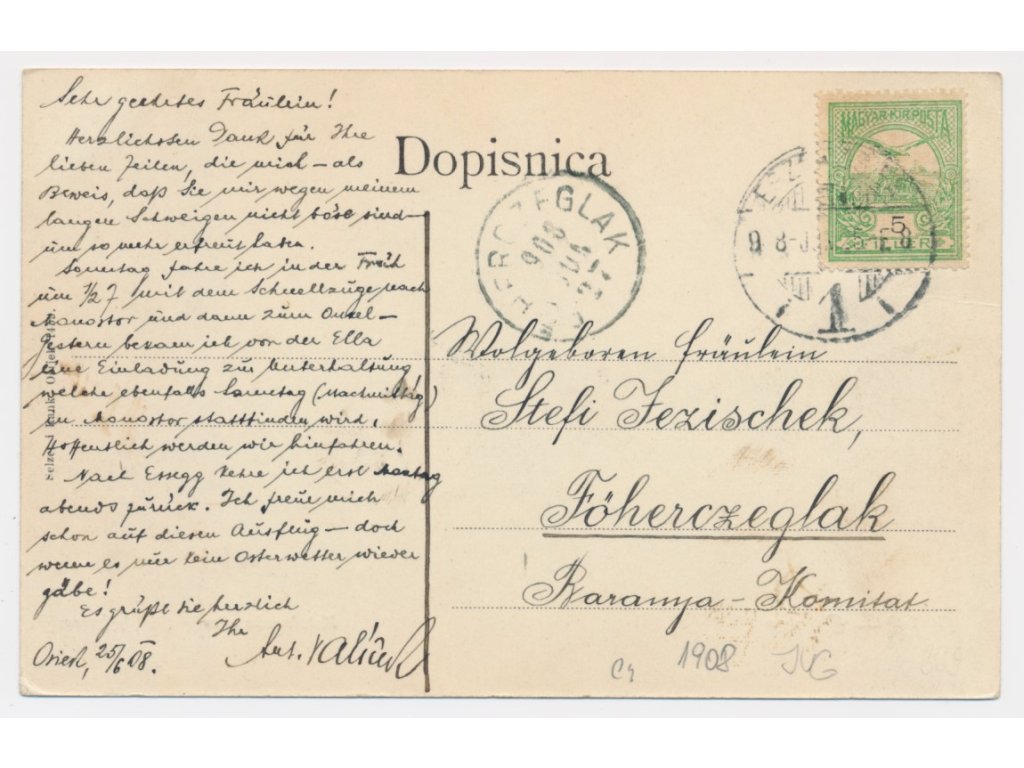 Sehr geehrtes Fräulein!
Herzlichsten Dank für Ihre
lieben Zeilen, die mich – als
Beweis, daß Sie mir wegen meinem
langen Schweigen nicht böse sind –
um so mehr erfreut haben.
Sonntag fahre ich in der Früh
um ½ 7 mit dem Schnellzuge nach
Monostor und dann zum Onkel –
Gestern bekam ich von der Ella
eine Einladung zur Unterhaltung
welche ebenfalls Sonntag (Nachmittag)
in Monostor stattfinden wird.
Hoffentlich werden wir hinfahren.
Nach Essegg kehre ich erst Montag
abends zurück. Ich freue mich
schon auf diesen Ausflug – doch
wenn es nur kein Osterwetter wieder
gäbe!
Es grüßt Sie herzlich
Ihr
Ant.
Osiek, 25/6 08.
Dopisnica
MAGYAR·KIR·POSTA
5
FILLER
HERCZEGLAK
908
1
Wolgeboren Fräulein
Stefi Jezischek,
Föherczeglak
Baranya – Komitat
1908 JUG